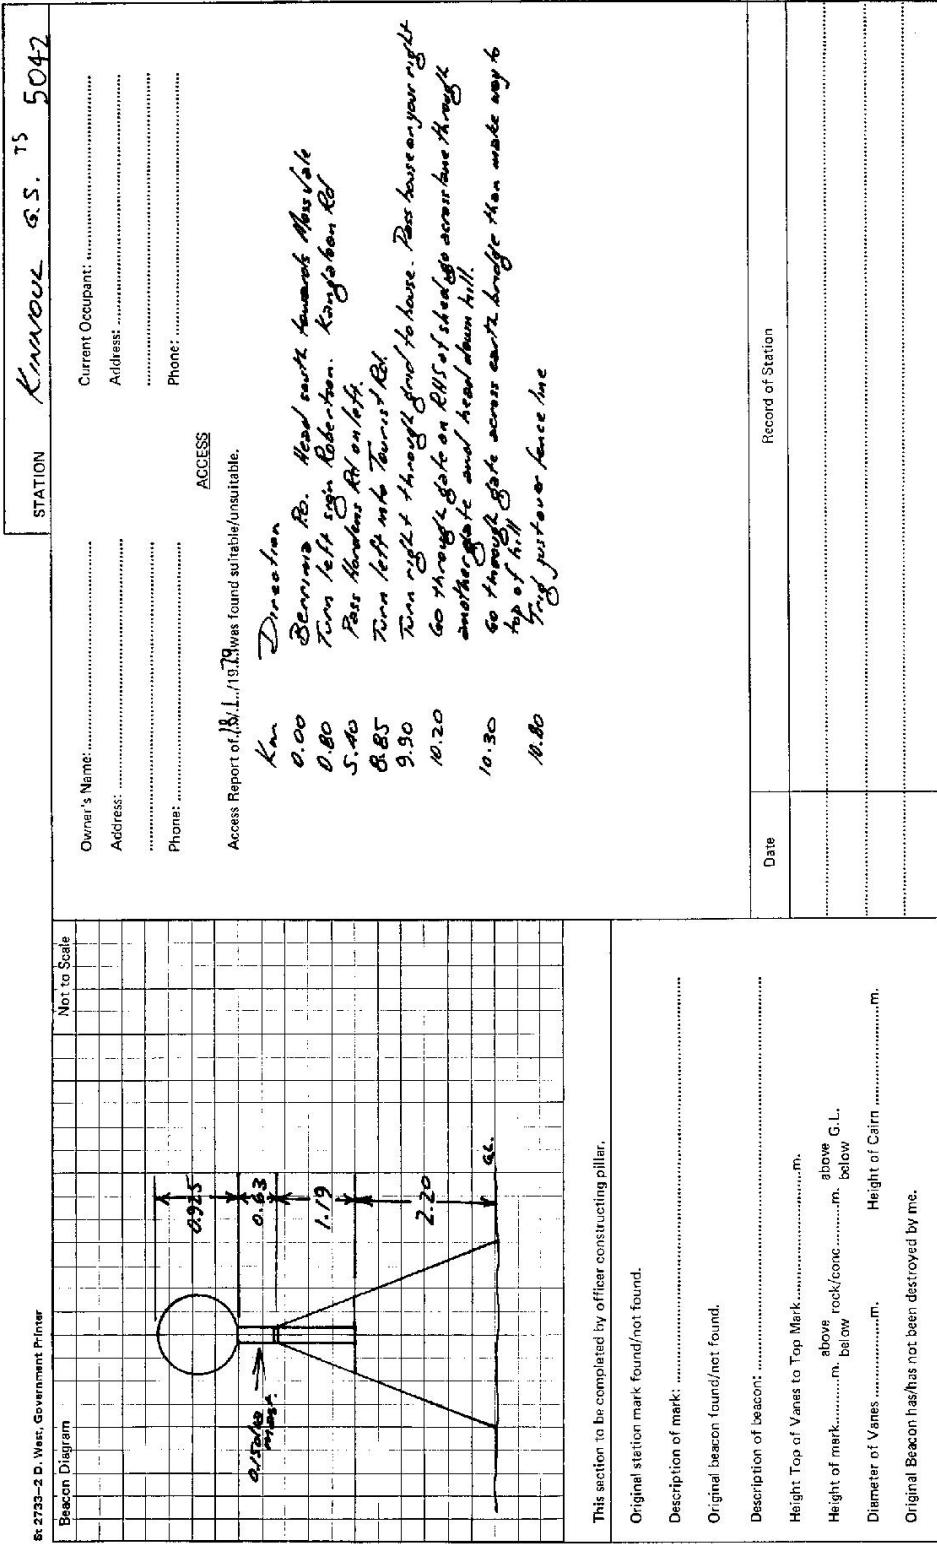 St 2733–2 D. West, Government Printer
Beacon Diagram
Not to Scale
0.925
0.63
1.19
2.20
G.L.
mast.
This section to be completed by officer constructing pillar.
Original station mark found/not found.
Description of mark:
Original beacon found/not found.
Description of beacon:
Height Top of Vanes to Top Mark m.
Height of mark m. above below rock/conc m. above below G.L.
Diameter of Vanes m. Height of Cairn m.
Original Beacon has/has not been destroyed by me.
STATION KINNOUL G.S. TS 5042
Owner's Name: Current Occupant:
Address: Address:
Phone: Phone:
ACCESS
Access Report of 18/1/1979 was found suitable/unsuitable.
Km Direction
0.00 Berrima P.O. Head south towards Moss Vale
0.80 Turn left sign Robertson. Kangaloon Rd
5.40 Pass Hordens Rd on left.
8.85 Turn left into Tourist Rd.
9.90 Turn right through grid to house. Pass house on your right
10.20 Go through gate on RHS of shed, go across lane through
another gate and head down hill.
10.30 Go through gate across earth bridge then make way to
top of hill
10.80 Trig just over fence line
Date Record of Station